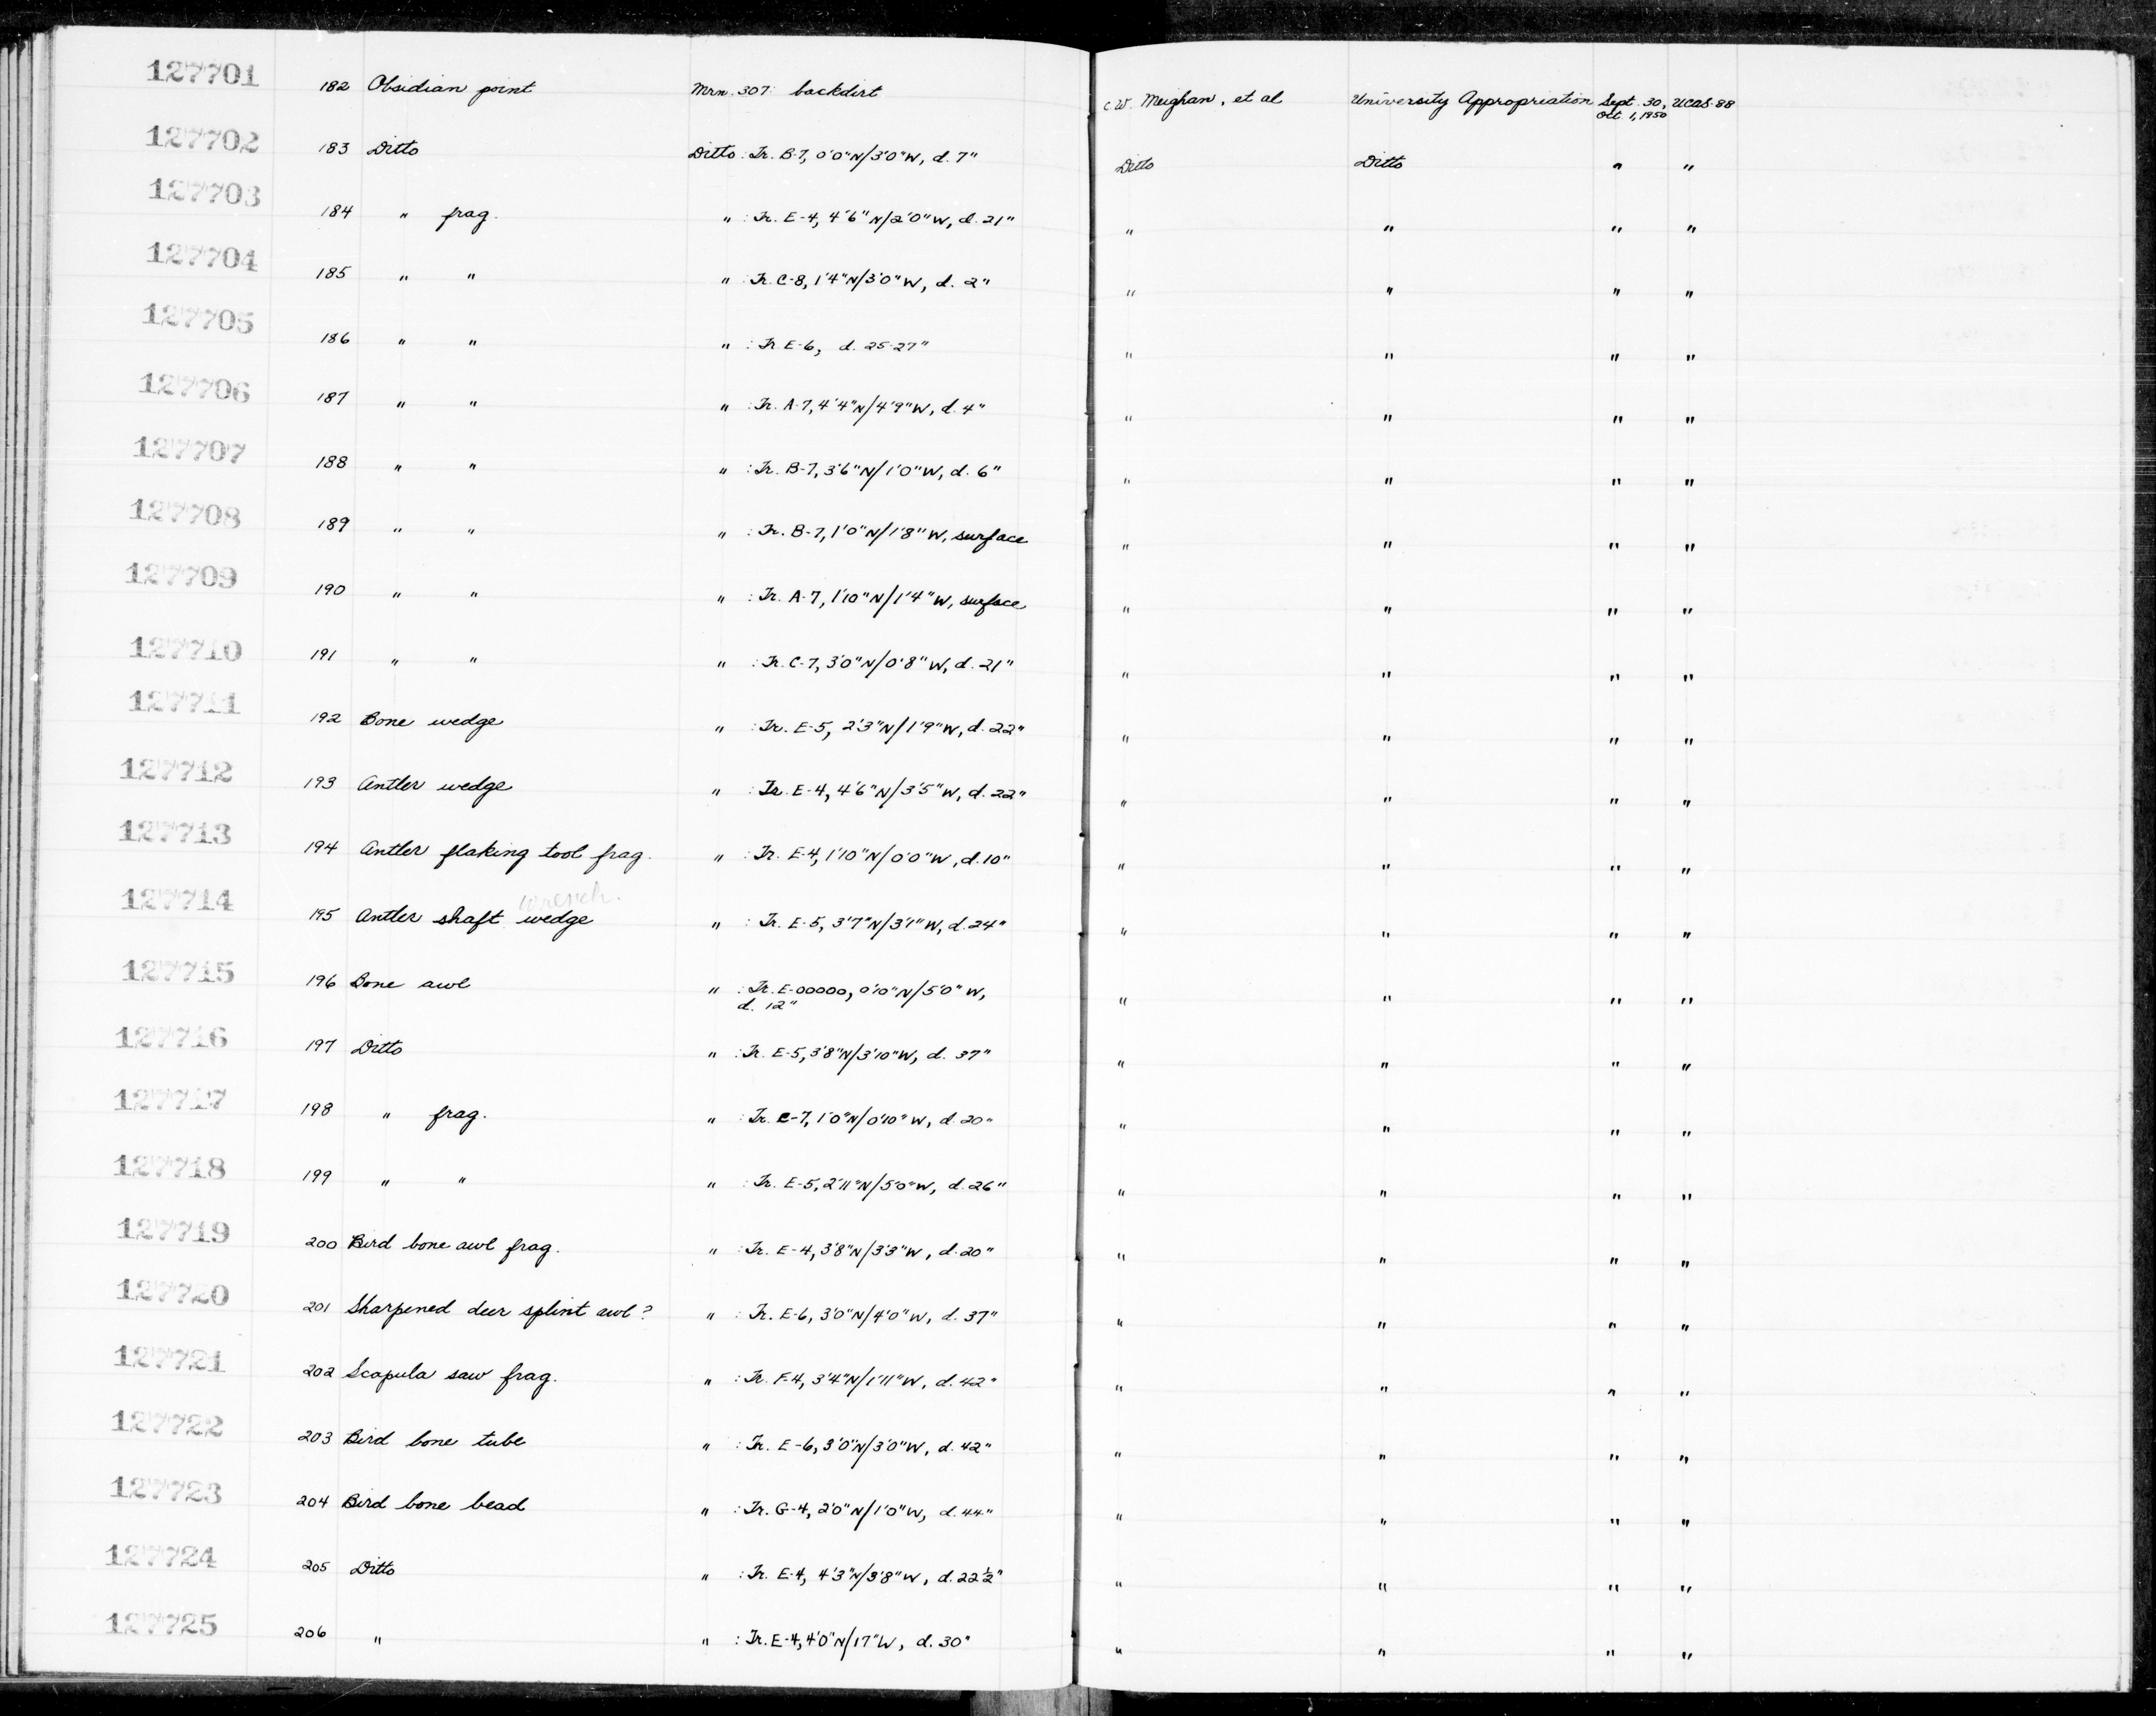 127701 182 Obsidian point Mrn. 307: backdirt C.W. Meighan, et al University Appropriation Sept. 30, Oct. 1, 1950 UCAS-88
127702 183 Ditto Ditto: Tr. B-7, 0'0"N/3'0"W, d. 7" Ditto Ditto " "
127703 184 " frag. " : Tr. E-4, 4'6"N/2'0"W, d. 21" " " " "
127704 185 " " " : Tr. C-8, 1'4"N/3'0"W, d. 2" " " " "
127705 186 " " " : Tr. E-6, d. 25-27" " " " "
127706 187 " " " : Tr. A-7, 4'4"N/4'9"W, d. 4" " " " "
127707 188 " " " : Tr. B-7, 3'6"N/1'0"W, d. 6" " " " "
127708 189 " " " : Tr. B-7, 1'0"N/1'8"W, surface " " " "
127709 190 " " " : Tr. A-7, 1'10"N/1'4"W, surface " " " "
127710 191 " " " : Tr. C-7, 3'0"N/0'8"W, d. 21" " " " "
127711 192 Bone wedge " : Tr. E-5, 2'3"N/1'9"W, d. 22" " " " "
127712 193 Antler wedge " : Tr. E-4, 4'6"N/3'5"W, d. 22" " " " "
127713 194 Antler flaking tool frag. " : Tr. E-4, 1'10"N/0'0"W, d. 10" " " " "
wrench.
127714 195 Antler shaft wedge " : Tr. E-5, 3'7"N/3'1"W, d. 24" " " " "
127715 196 Bone awl " : Tr. E-00000, 0'10"N/5'0"W, " " " "
d. 12"
127716 197 Ditto " : Tr. E-5, 3'8"N/3'10"W, d. 37" " " " "
127717 198 " frag. " : Tr. C-7, 1'0"N/0'10"W, d. 20" " " " "
127718 199 " " " : Tr. E-5, 2'11"N/5'0"W, d. 26" " " " "
127719 200 Bird bone awl frag. " : Tr. E-4, 3'8"N/3'3"W, d. 20" " " " "
127720 201 Sharpened deer splint awl? " : Tr. E-6, 3'0"N/4'0"W, d. 37" " " " "
127721 202 Scapula saw frag. " : Tr. F-4, 3'4"N/1'11"W, d. 42" " " " "
127722 203 Bird bone tube " : Tr. E-6, 3'0"N/3'0"W, d. 42" " " " "
127723 204 Bird bone bead " : Tr. G-4, 2'0"N/1'0"W, d. 44" " " " "
127724 205 Ditto " : Tr. E-4, 4'3"N/3'8"W, d. 22½" " " " "
127725 206 " " : Tr. E-4, 4'0"N/1'7"W, d. 30" " " " "